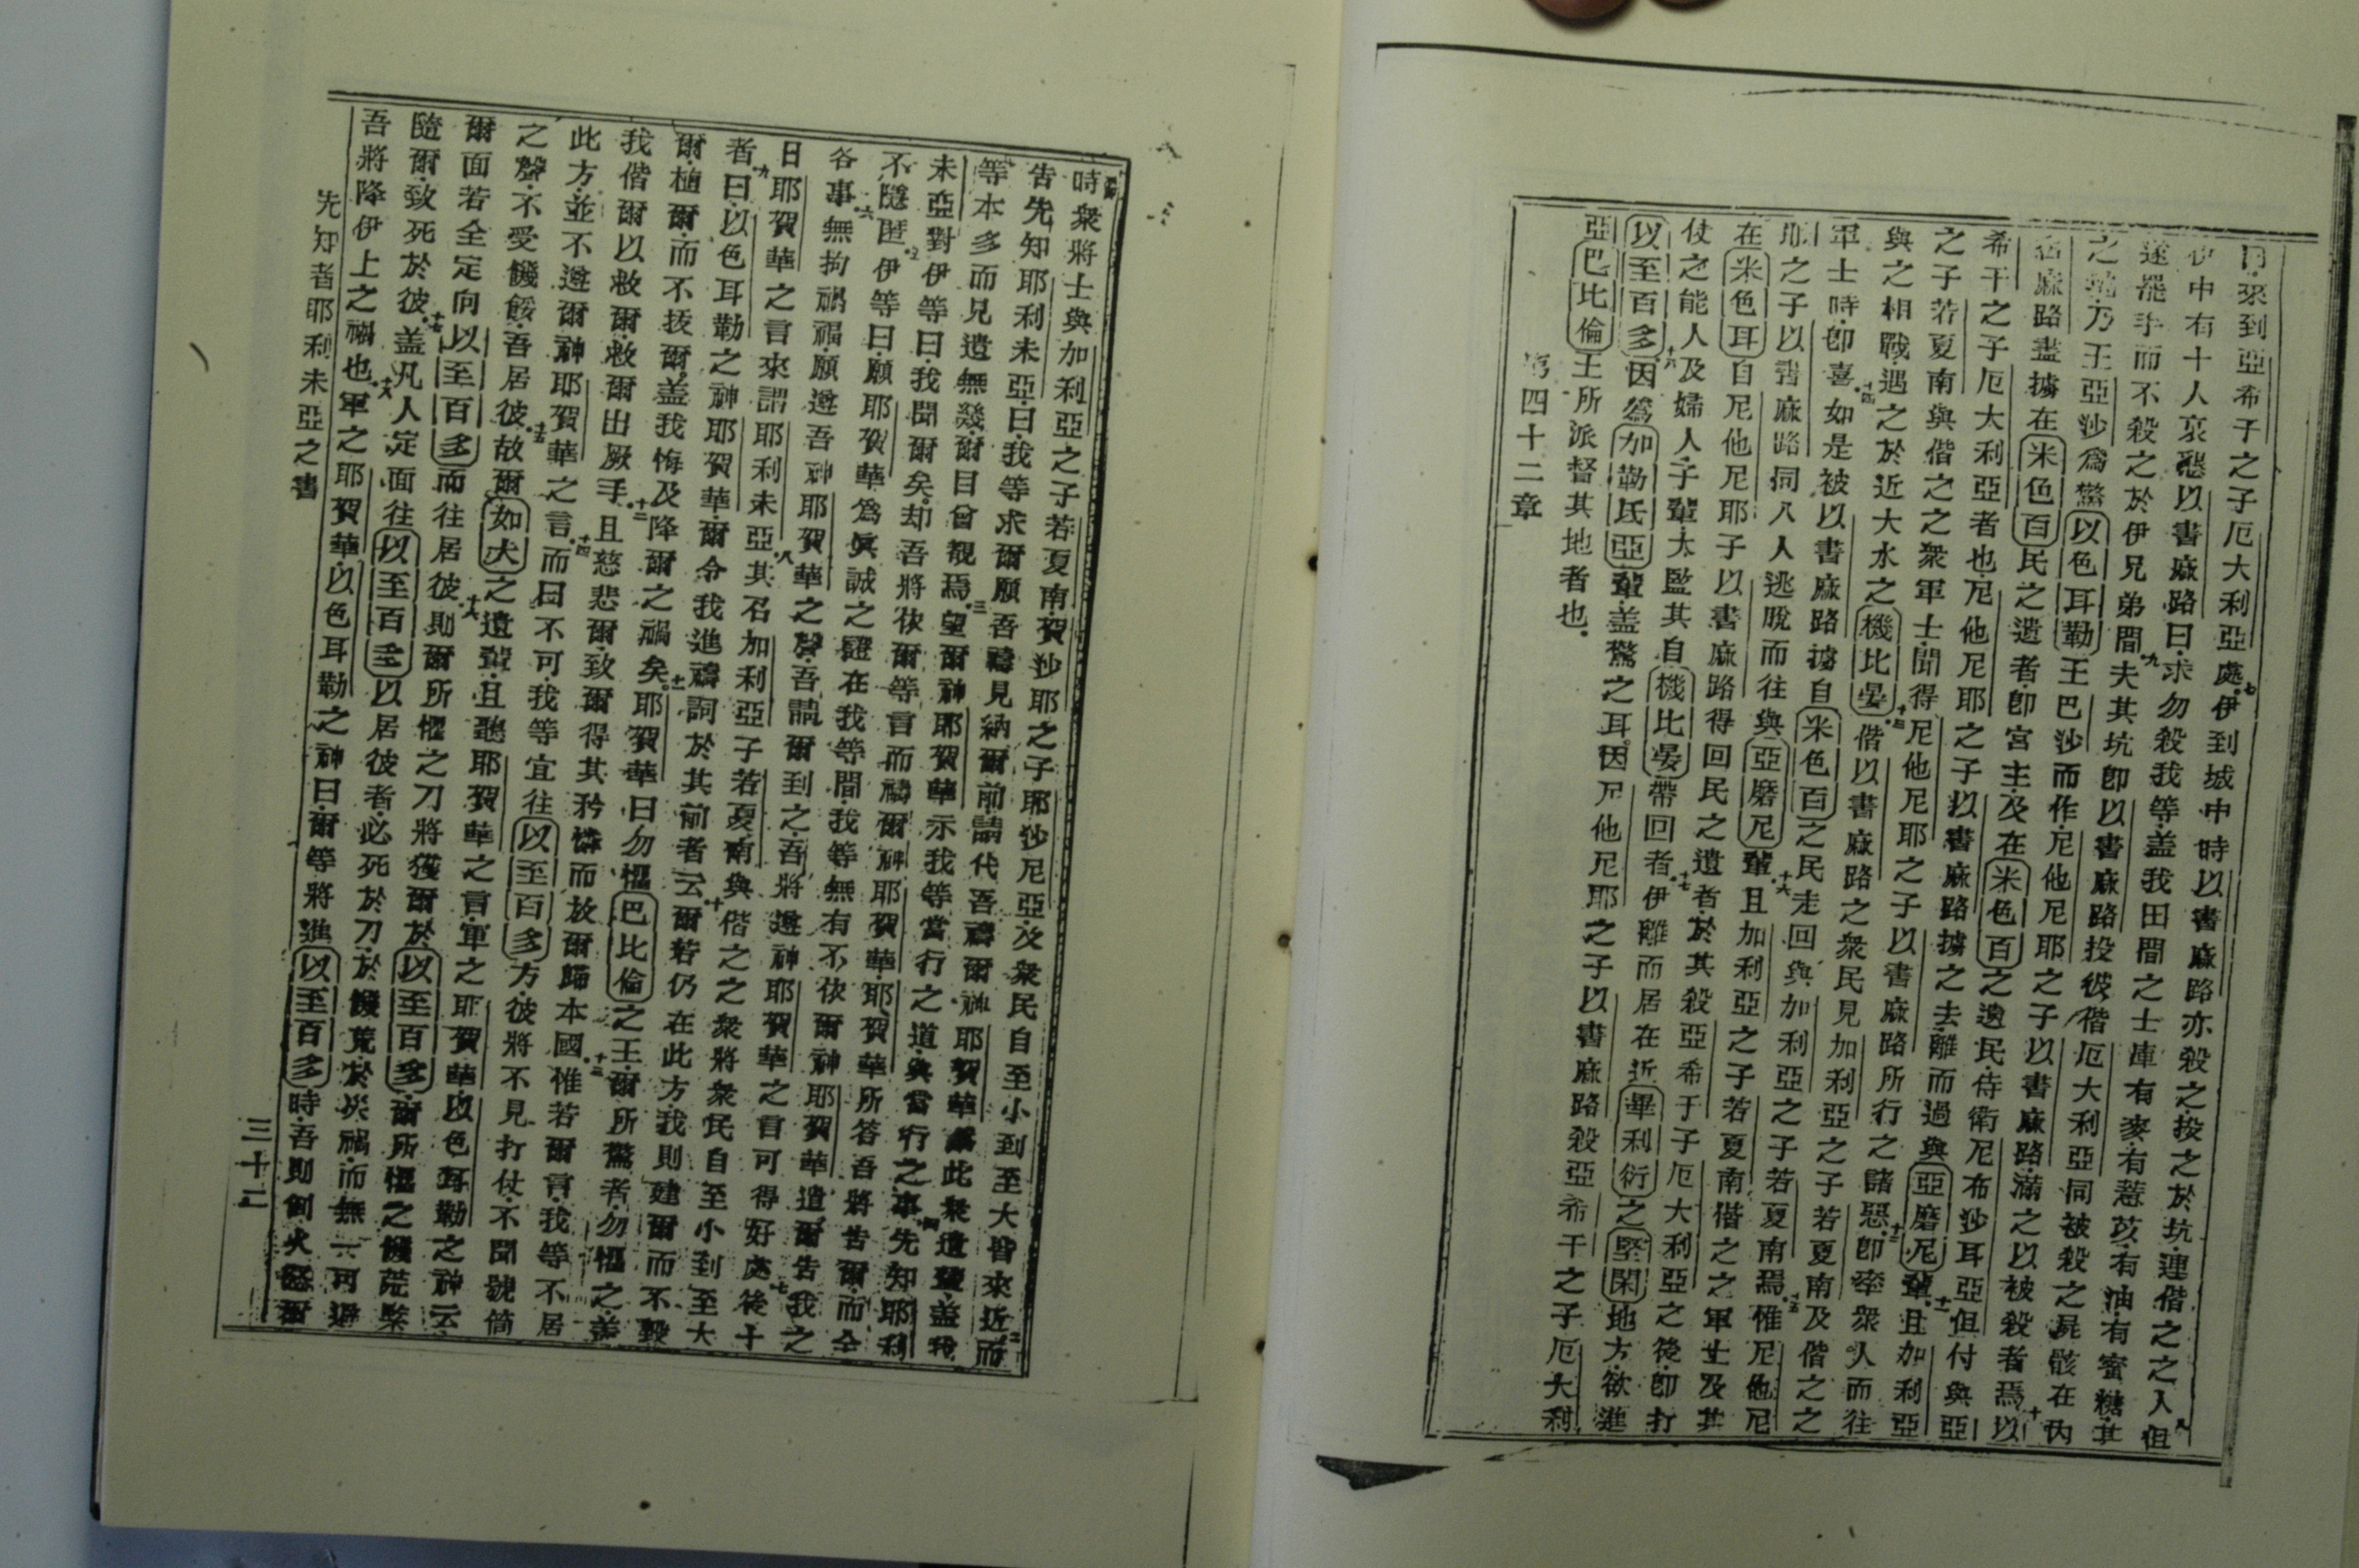 曰來到亞希干之子厄大利亞處七伊到城中時以書麻路亦殺之投之於坑連偕之之人八但
伊中有十人哀懇以書麻路曰求勿殺我等盖我田間之士庫有麥有薏苡有油有蜜糖其
遂罷手而不殺之於伊兄弟間九夫其坑卽以書麻路投彼偕厄大利亞同被殺之屍骸在內
之乃王亞沙爲驚以色耳勒王巴沙而作尼他尼耶之子以書麻路滿之以被殺者焉十以
書麻路盡擄在米色百民之遺者卽宮主及在米色百之遺民侍衛尼布沙耳亞但付與亞
希干之子厄大利亞者也尼他尼耶之子以書麻路擄之去離而過與亞磨尼輩十一且加利亞
之子若夏南與偕之之衆軍士聞得尼他尼耶之子以書麻路所行之諸惡十二卽率衆人而往
與之相戰遇之於近大水之機比晏十三偕以書麻路之衆民見加利亞之子若夏南及偕之之
軍士時卽喜十四如是被以書麻路擄自米色百之民走回與加利亞之子若夏南焉十五惟尼他尼
耶之子以書麻路同八人逃脫而往與亞磨尼輩十六且加利亞之子若夏南偕之之軍士及其
在米色耳自尼他尼耶子以書麻路得回民之遺者於其殺亞希于子厄大利亞之後卽打
仗之能人及婦人子輩太監其自機比晏帶回者十七伊離而居在近畢利衍之堅閑地方欲進
以至百多十八因爲加勒氐亞輩盖驚之耳因尼他尼耶之子以書麻路殺亞希干之子厄大利
亞巴比倫王所派督其地者也
第四十二章
時衆將士與加利亞之子若夏南賀沙耶之子耶沙尼亞及衆民自至小到至大皆來近二而
告先知耶利未亞曰我等求爾願吾禱見納爾前請代吾禱爾神耶賀華爲此衆遺輩盖我
等本多而見遺無幾爾目曾覩焉三望爾神耶賀華示我等當行之道與當行之事四先知耶利
未亞對伊等曰我聞爾矣却吾將依爾等言而禱爾神耶賀華耶賀華所答吾將告爾而全
不隱匿五伊等曰願耶賀華爲眞誠之證在我等間我等無有不依爾神耶賀華遣爾告我之
各事六無拘禍福願遵吾神耶賀華之聲吾請爾到之吾將遵神耶賀華之言可得好處七後十
日耶賀華之言來謂耶利未亞八其召加利亞子若夏南與偕之之衆將衆民自至小到至大
者九曰以色耳勒之神耶賀華爾令我進禱詞於其前者云十爾若仍在此方我則建爾而不毀
爾植爾而不拔爾盖我悔及降爾之禍矣十一耶賀華曰勿懼巴比倫之王爾所驚者勿懼之盖
我偕爾以救爾救爾出厥手十二且慈悲爾致爾得其矜憐而放爾歸本國十三惟若爾言我等不居
此方並不遵爾神耶賀華之言十四而曰不可我等宜往以至百多方彼將不見打仗不聞號筒
之聲不受饑餒吾居彼十五故爾如大之遺輩且聽耶賀華之言軍之耶賀華以色耳勒之神云
爾面若全定向以至百多而往居彼十六則爾所懼之刀將獲爾於以至百多爾所懼之饑荒槩
隨爾致死於彼十七盖凡人定面往以至百多以居彼者必死於刀於饑荒於災禍而無一可避
吾將降伊上之禍也十八軍之耶賀華以色耳勒之神曰爾等將進以至百多時吾則倒火怒爾
先知者耶利未亞之書
三十二